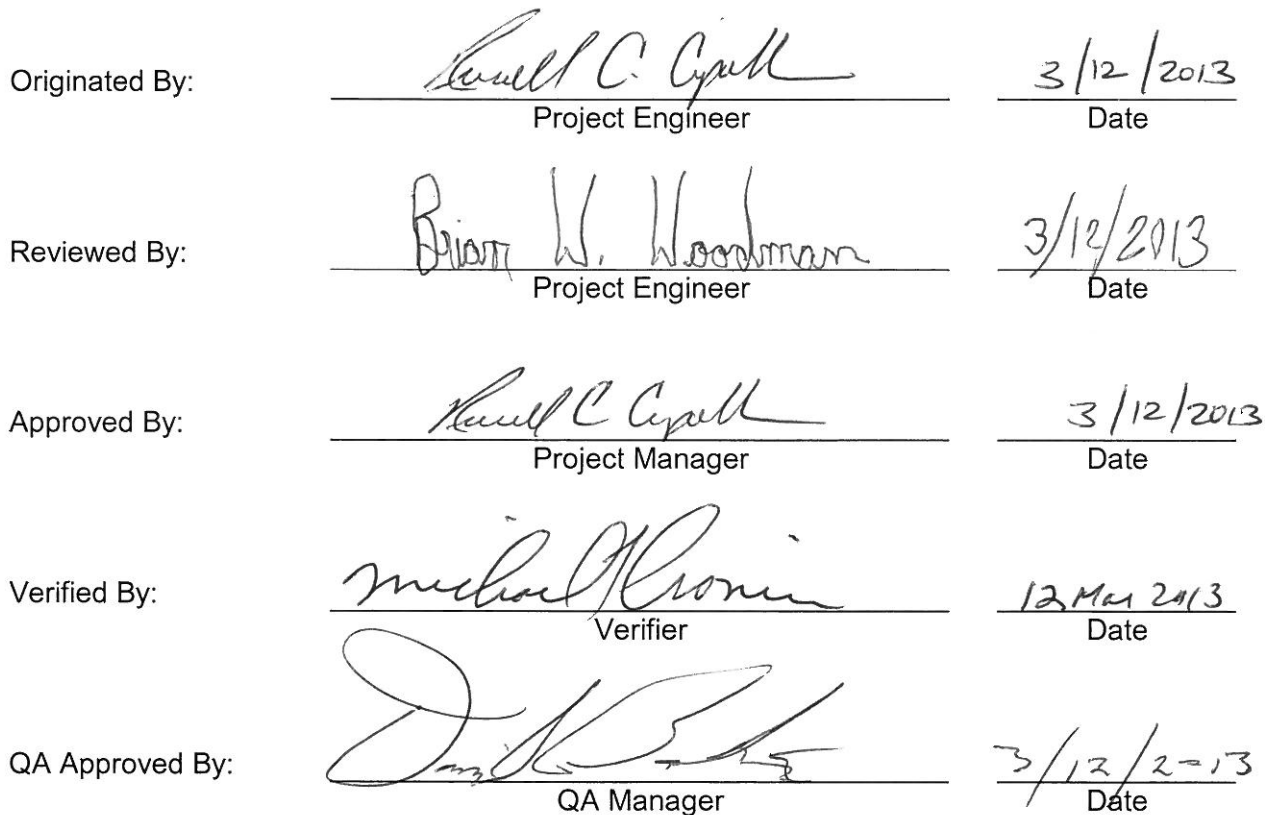 Originated By: C. 3/12/2013
Project Engineer Date
Reviewed By: Brian W. Woodman 3/12/2013
Project Engineer Date
Approved By: C 3/12/2013
Project Manager Date
Verified By: Michael Cronin 12 Mar 2013
Verifier Date
QA Approved By: 3/12/2013
QA Manager Date